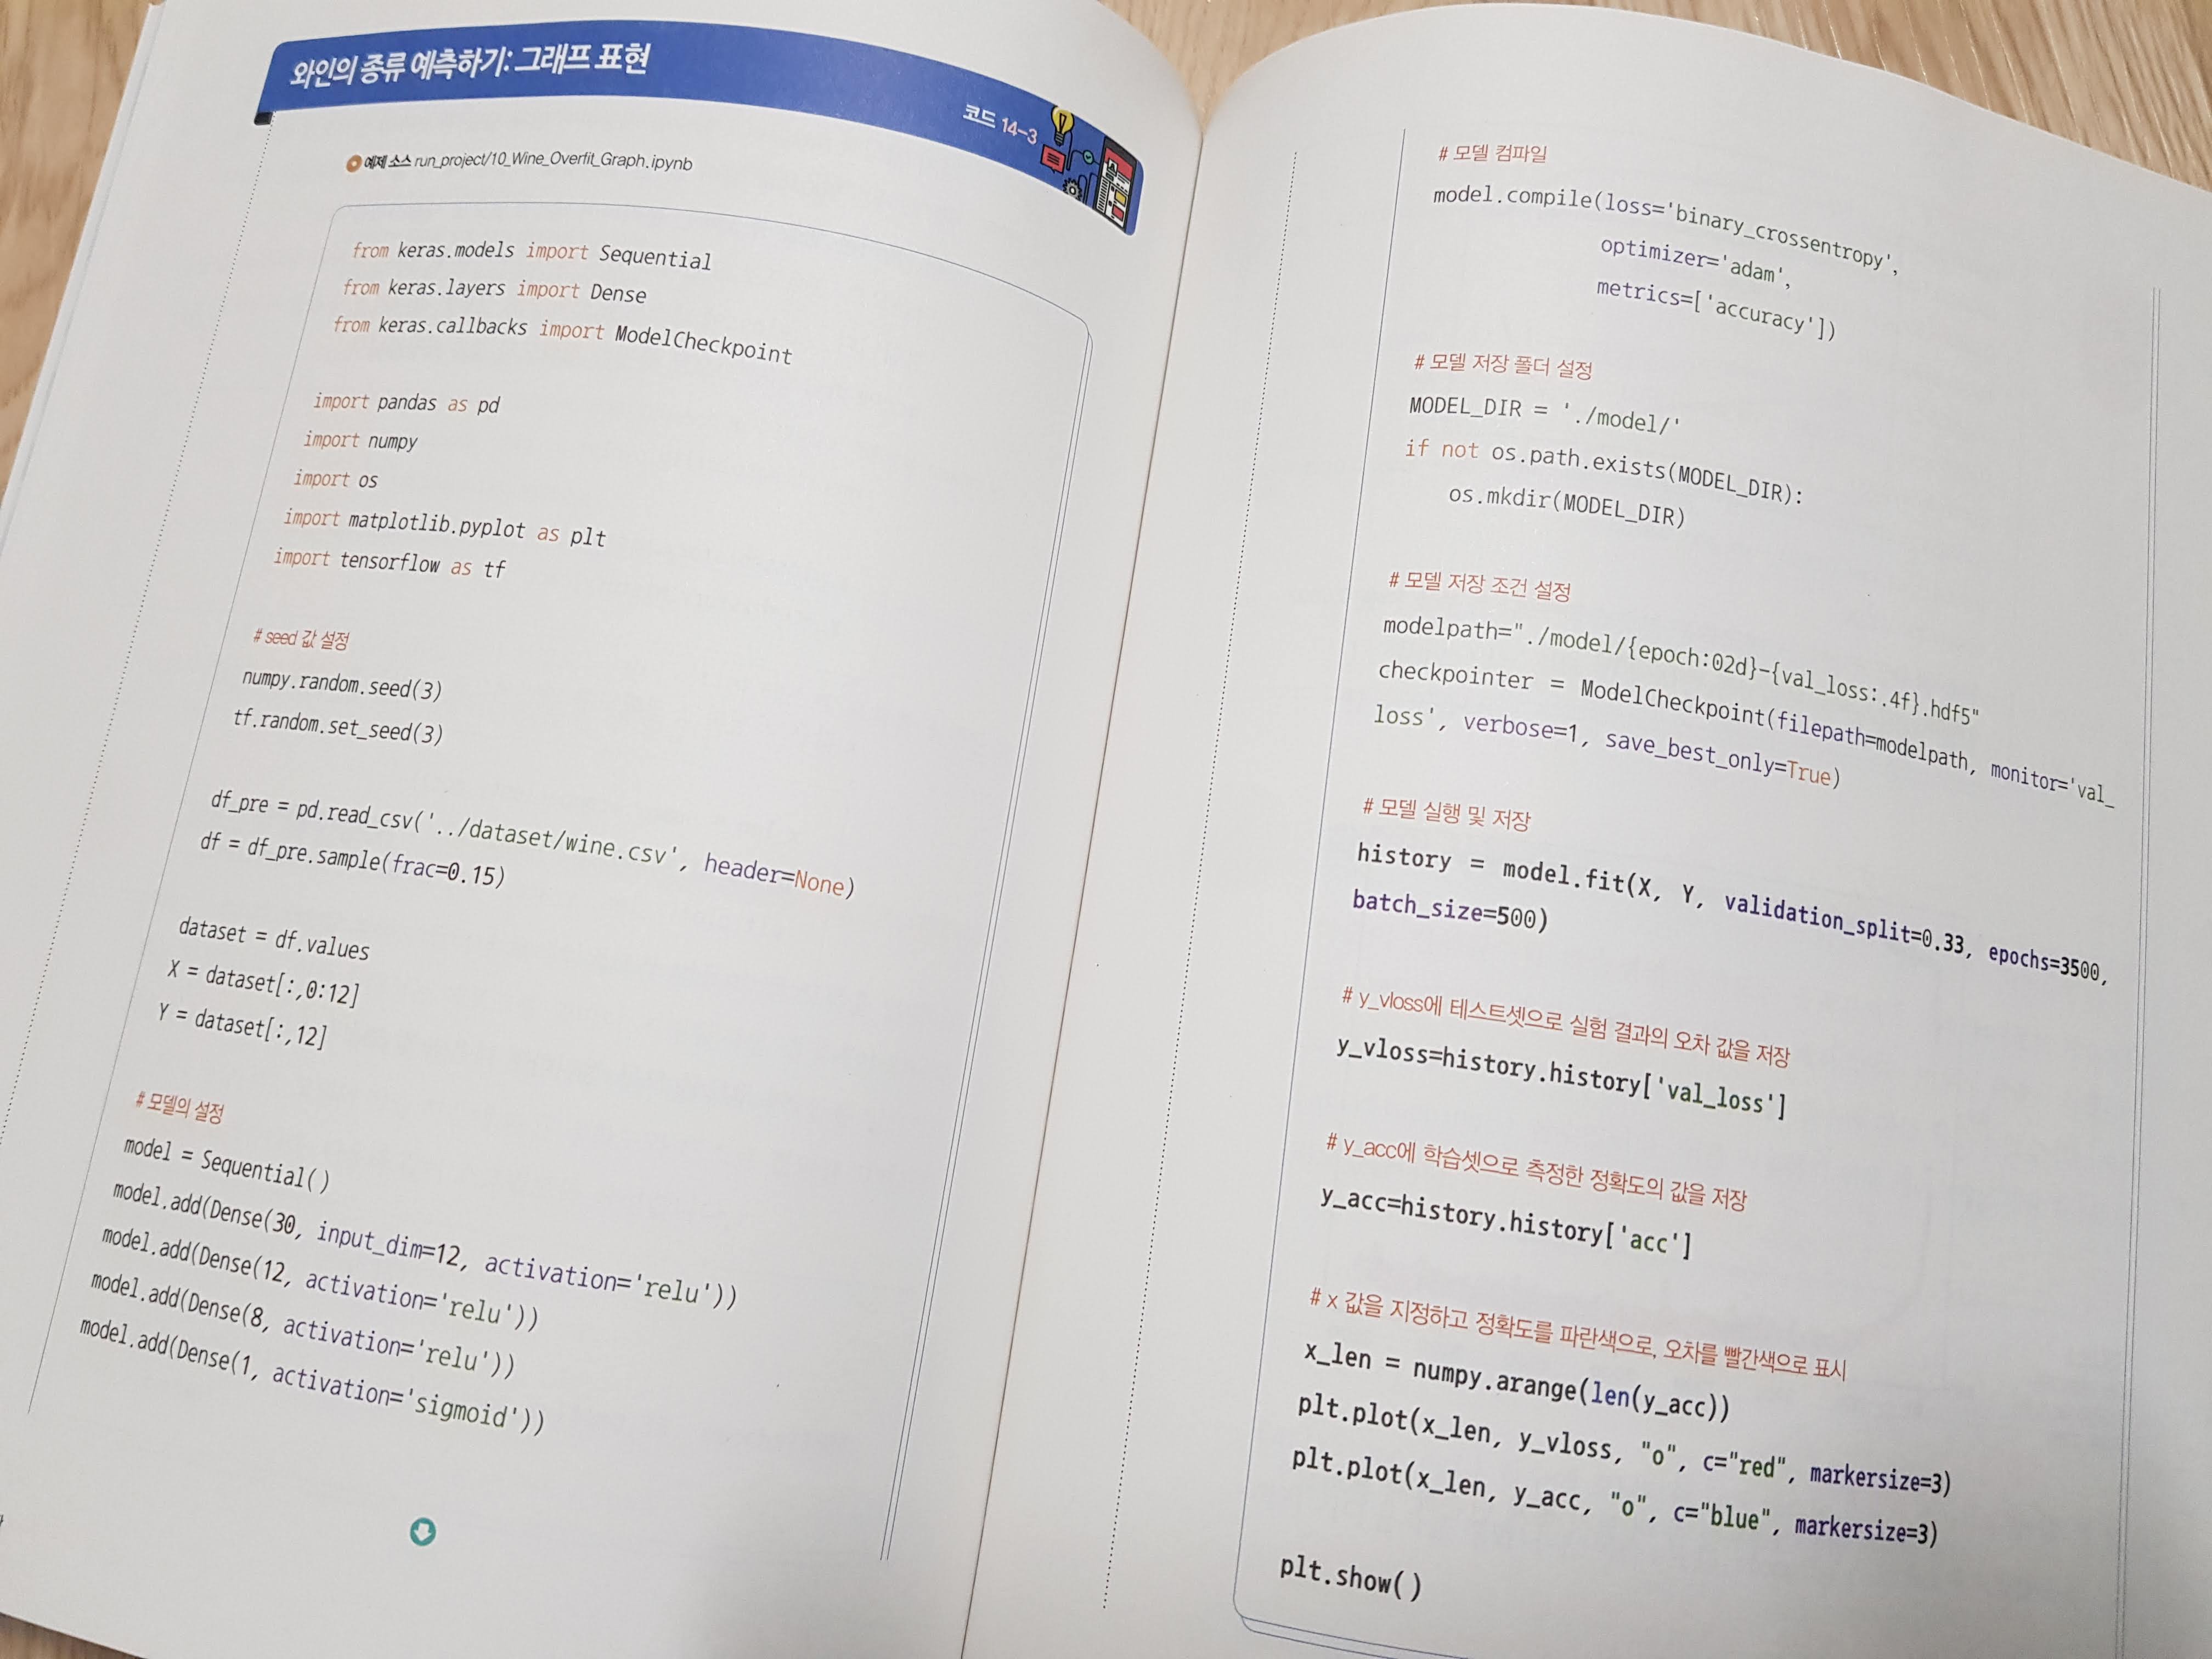 와인의 종류 예측하기: 그래프 표현
코드 14-3
예제 소스 run_project/10_Wine_Overfit_Graph.ipynb
from keras.models import Sequential
from keras.layers import Dense
from keras.callbacks import ModelCheckpoint
import pandas as pd
import numpy
import os
import matplotlib.pyplot as plt
import tensorflow as tf
# seed 값 설정
numpy.random.seed(3)
tf.random.set_seed(3)
df_pre = pd.read_csv('../dataset/wine.csv', header=None)
df = df_pre.sample(frac=0.15)
dataset = df.values
X = dataset[:,0:12]
Y = dataset[:,12]
# 모델의 설정
model = Sequential()
model.add(Dense(30, input_dim=12, activation='relu'))
model.add(Dense(12, activation='relu'))
model.add(Dense(8, activation='relu'))
model.add(Dense(1, activation='sigmoid'))
# 모델 컴파일
model.compile(loss='binary_crossentropy',
optimizer='adam',
metrics=['accuracy'])
# 모델 저장 폴더 설정
MODEL_DIR = './model/'
if not os.path.exists(MODEL_DIR):
os.mkdir(MODEL_DIR)
# 모델 저장 조건 설정
modelpath="./model/{epoch:02d}-{val_loss:.4f}.hdf5"
checkpointer = ModelCheckpoint(filepath=modelpath, monitor='val_
loss', verbose=1, save_best_only=True)
# 모델 실행 및 저장
history = model.fit(X, Y, validation_split=0.33, epochs=3500,
batch_size=500)
# y_vloss에 테스트셋으로 실험 결과의 오차 값을 저장
y_vloss=history.history['val_loss']
# y_acc에 학습셋으로 측정한 정확도의 값을 저장
y_acc=history.history['acc']
# x 값을 지정하고 정확도를 파란색으로, 오차를 빨간색으로 표시
x_len = numpy.arange(len(y_acc))
plt.plot(x_len, y_vloss, "o", c="red", markersize=3)
plt.plot(x_len, y_acc, "o", c="blue", markersize=3)
plt.show()